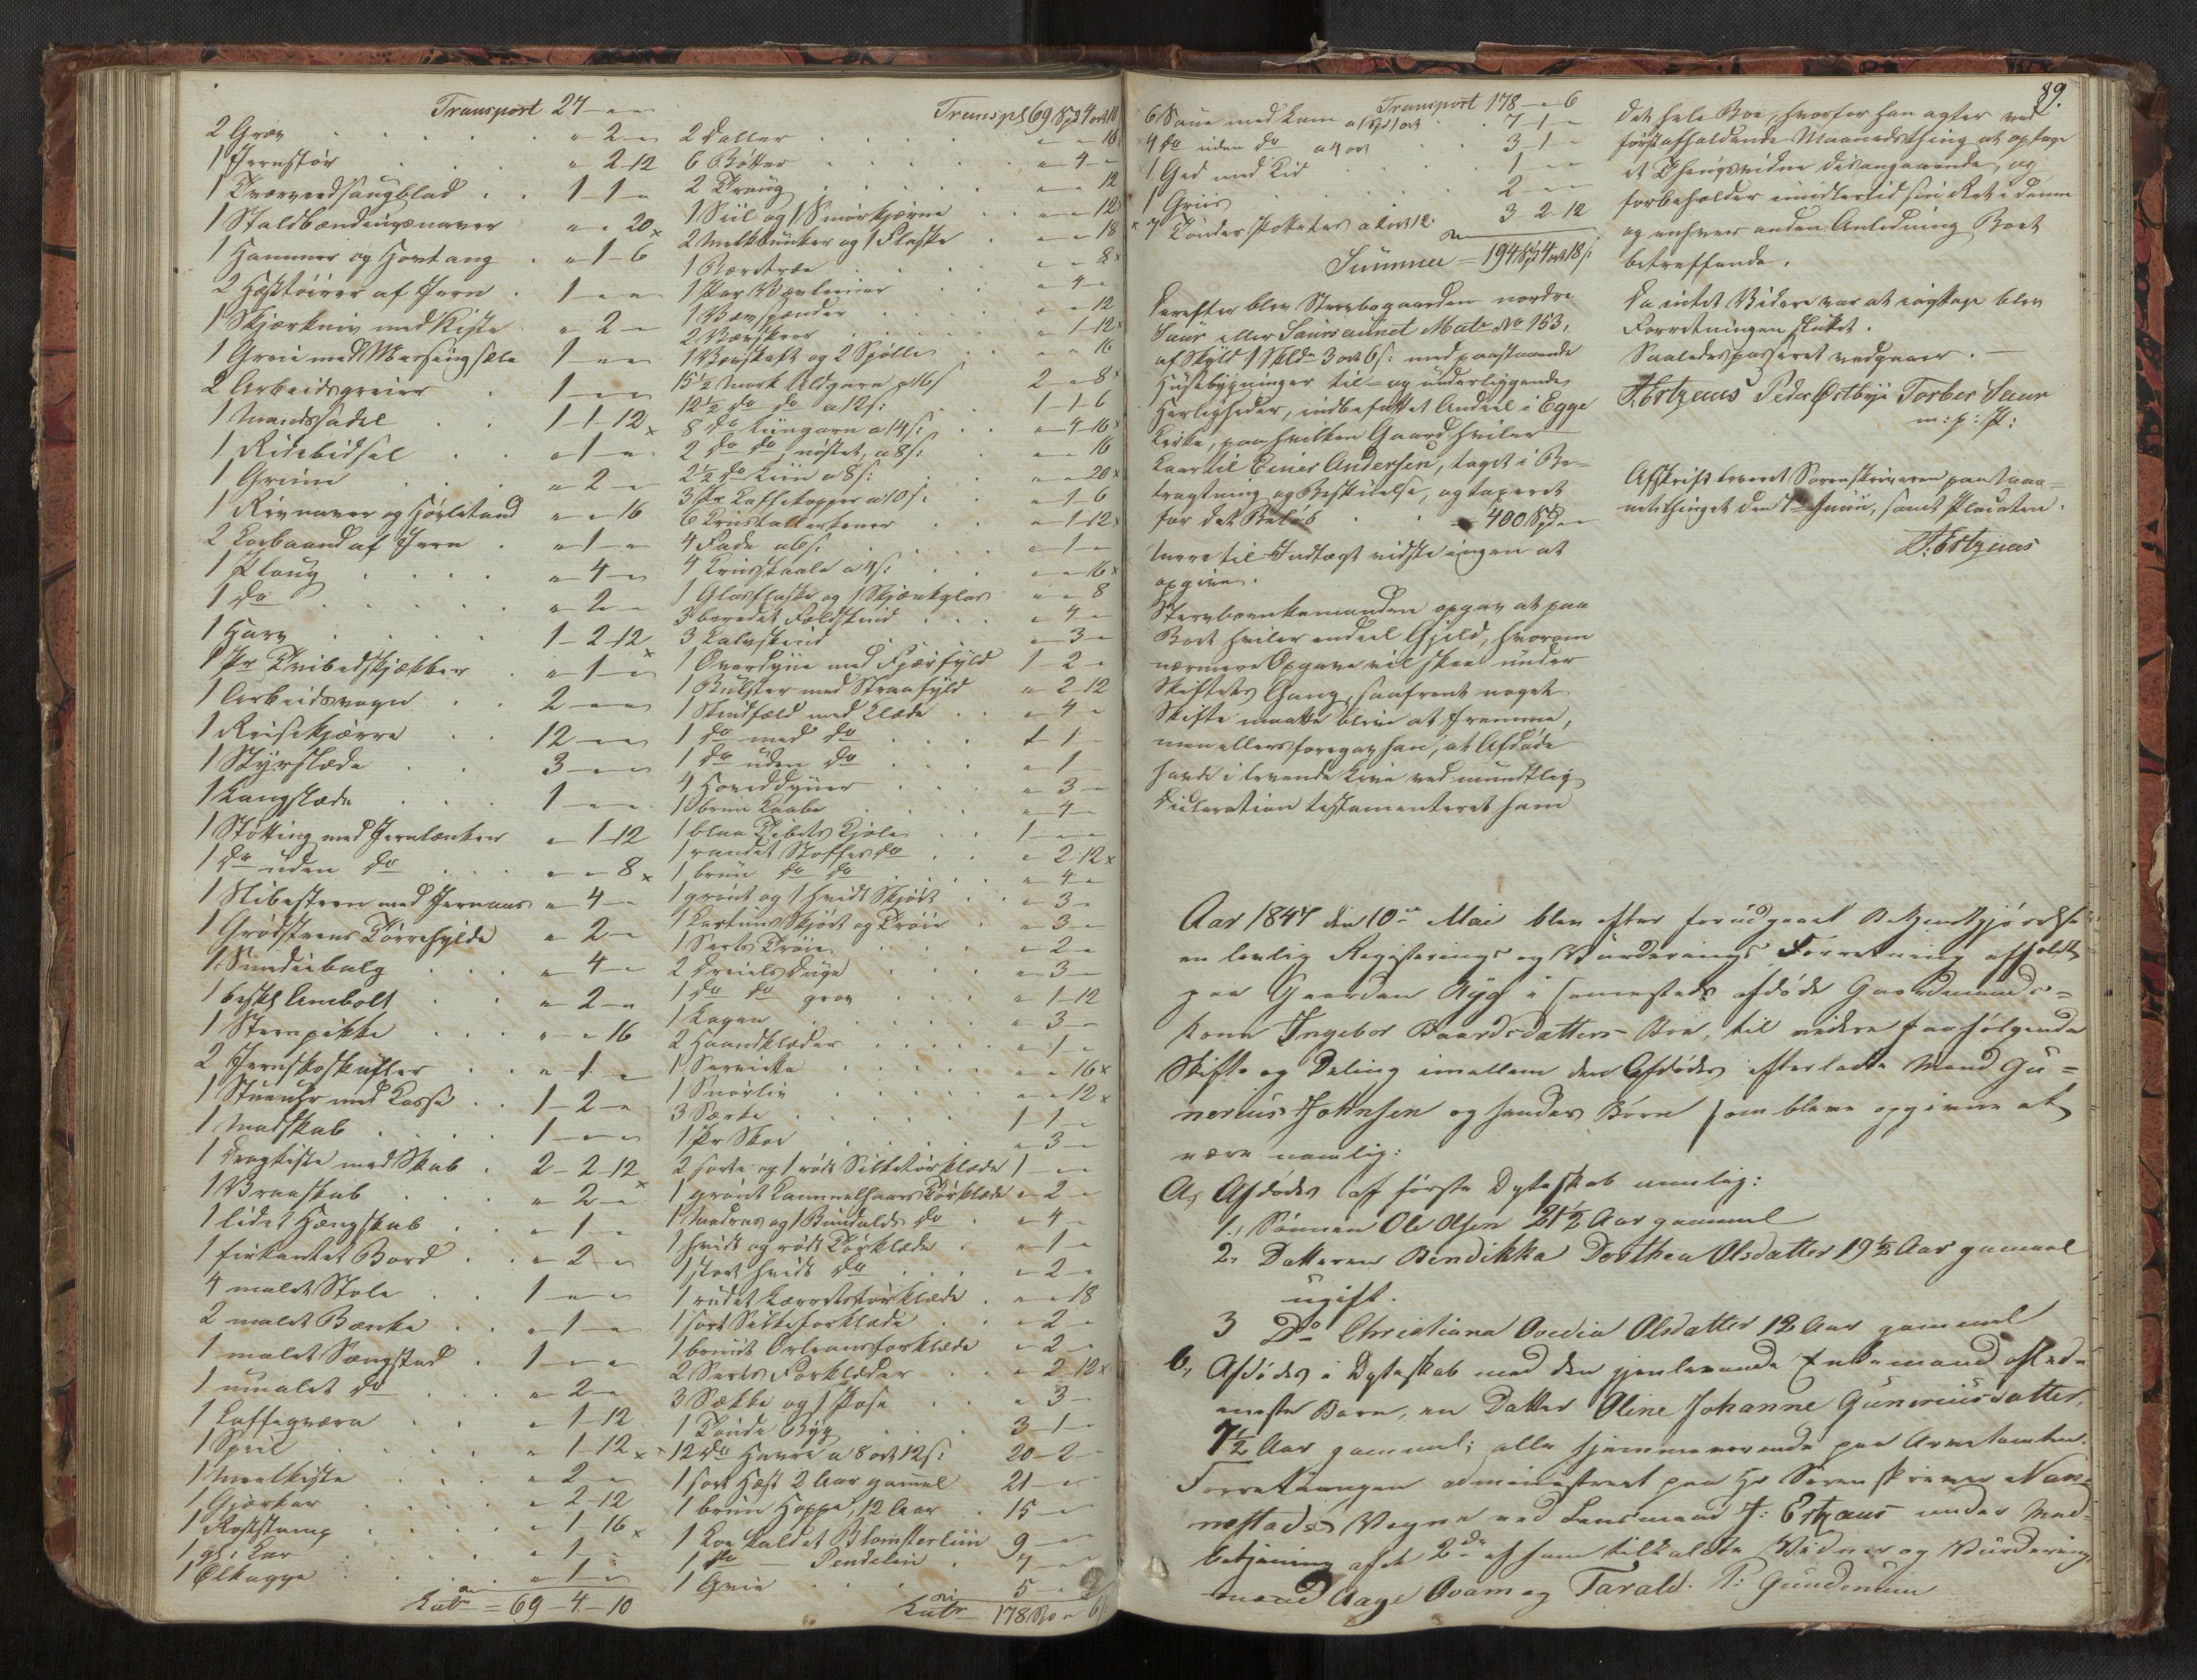 Transport 27 - " - "
2 Grev . . " - 2 - "
1 Jernstør . . " - 2 - 12
1 Tvervedsaugblad . . 1 - 1 - "
1 Staldbændingsnaver " - " - 20
1 Hammer og Hovtang . " - 1 - 6
2 Hesttøirer af Jern . 1 - " - "
1 Skjærkniv med Kiste " - 2 - "
1 Greie med Messingsæle 1 - " - "
2 Arbeidsgreier . 1 - " - "
1 Mandssadel . . 1 - 1 - 12
1 Ridebidsel . . " - 1 - "
1 Grime . . " - 2 - "
1 Rivnaver og Høvletand " - " - 16
2 Korbaand af Jern . " - 1 - "
1 Ploug . . " - 4 - "
1 do . . " - 2 - "
1 Harv . . 1 - 2 - 12
1 Pr Tvibedskjækker . " - 1 - "
1 Arbeidsvogn . . 2 - " - "
1 Reisekjærre . . 12 - " - "
1 Styrslæde . . 3 - " - "
1 Langslæde . . 1 - " - "
1 Støtting med Jernlænker " - 1 - 12
1 do uden do . . " - " - 8
1 Slibesteen med Jernaas " - 4 - "
1 Grødsteens Tørrehylde " - 2 - "
1 Smediebelg . . " - 4 - "
1 beskt Ambolt . . " - 2 - "
1 Steenpikke . . " - " - 16
2 Jernskoskufler . . " - 1 - "
1 Stueuhr med Kasse . . 1 - 2 - "
1 Madskab . . 1 - " - "
1 Dragkiste med Skab . 2 - 2 - 12
1 Vraaskab . . " - 2 - "
1 lidet Hængskab . . " - 1 - "
1 firkantet Bord . . " - 2 - "
4 malet Stole . . 1 - " - "
2 malet Bænke . . " - 1 - "
1 malet Sængsted . 1 - " - "
1 umalet do . . " - 2 - "
1 Kaffeqværn . . " - 1 - 12
1 Speil . . " - 1 - 12
1 Meelkiste . . " - 2 - "
1 Gjærkar . . " - 2 - 12
1 Roststamp . . " - 1 - 16
1 gl: Kar . . " - 1 - "
1 Ølkagge . . " - 1 - "
Latr = 69 - 4 - 10
Transpt 69 Spd 4 ort 10
2 Daller . . " - " - 16
6 Bøtter . . " - 4 - "
2 Traug . . " - " - 12
1 Siil og 1 Smørkjærne . . " - " - 12
2 Melkbunker og 1 Flaske . " - " - 18
1 Bæretræe . . " - " - 8
1 Par Vævleener . . " - 4 - "
1 Vævspænder . . " - " - 12
2 Vævskeer . . " - 1 - 12
1 Vævskaft og 2 Spolle . . " - " - 16
15½ Mark Uldgarn a 16 s 2 - " - 8
12½ do do a 12 s: . 1 - 1 - 6
8 do Liingarn a 14 s: . . " - 4 - 16
2 do do, nøstet, a 8 s: . " - " - 16
2½ do Liin a 8 s: . . " - " - 20
3 Pr Kaffekopper a 10 s: . " - 1 - 6
6 Krustallerkener . . " - 1 - 12
4 Fade a 6 s: . . " - 1 - "
4 Krusskaale a 4 s: . . " - " - 16
1 Glasflaske og 1 Skjænkglas " - " - 8
3 beredet Foldskind . . " - 4 - "
3 Kalvskind . . " - 3 - "
1 Overdyne med Fjærfyld 1 - 2 - "
1 Bulster med Straafyld " - 2 - 12
1 Skindfæld med Klæde . . " - 4 - "
1 do med do . . 1 - 1 -
1 do uden do . . " - 1 -
4 Hoveddyner . . " - 3 - "
1 brun Kaabe . . " - 4 -
1 blaa Tibets Kjole . . 1 - " - "
1 randet Stoffes do . . " - 2 - 12
1 brun do do . . " - 4 - "
1 grønt og 1 hvidt Skjørt . . " - 3 - "
1 Kartuns Skjørt og Trøie . " - 3 - "
1 Serts Trøie . . " - 2 - "
2 Dreiels Duge . . " - 3 - "
1 do do grov . . " - 1 - 12
1 Lagen . . " - 3 - "
2 Haandklæder . . " - 1 - "
1 Serviette . . " - " - 16
1 Snørliv . . " - " - 12
3 Særke . . 1 - 1 - "
1 Pr Skoe . . " - 3 - "
2 sorte og 1 rødt Silketørklæde 1 - " - "
1 grønt Kammelhaars Tørklæde " - 2 - "
1 Madras og 1 Bundulds do . " - 4 - "
1 hvidt og rødt Tørklæde . " - 1 - "
1 stort hvidt do . . " - 2 - "
1 rudet Lærretstørklæde . " - " - 18
1 sort Silkeforklæde . . " - 2 - "
1 bruunt Orleansforklæde " - 2 - "
2 Serts Forklæder . . " - 2 - 12
3 Sække og 1 Pose . . " - 3 - "
1 Tønde Byg . . 3 - 1 - "
12 do Havre a 8 ort 12 s: 20 - 2 -
1 sort Hest 2 Aar gamel 21 - "
1 brun Hoppe, 12 Aar . 15 - "
1 Koe kaldet Blomsterliin 9 - " - "
1 do — Dendelin . 7 - " - "
1 Qvie . . 5 - "
Latr 178 Spd " 6 s:
89.
Transport 178 - " - 6
6 Saue med Lam a 1 Spd 1 ort . . 7 - 1 - "
4 do uden do a 4 ort . . 3 - 1 - "
1 Ged med Kid . . 1 - " - "
1 Griis . . 2 - " - "
7 Tønder Poteter a 2 ort 12 . 3 - 2 - 12
Summa = 194 Spd 4 ort 18 s:
Derefter blev Stervbogaarden nordre
Saur eller Saursaunet Matr No 153,
af Skyld 1 Skldr 3 ort 6 s: med paastaaende
Husebygninger til= og underliggende
Herligheder, indbefattet Andeel i Egge
Kirke, paa hvilken Gaard hviler
Kaar til Einer Andersen, taget i Be=
tragtning og Beskuelse, og taxeret
for det Beløb . . = 400 Spd "
Mere til Indtægt vidste ingen at
opgive.
Stervboenkemanden opgav at paa
Boet hviler endeel Gjeld, hvorom
nærmere Opgave vil skee under
Skiftets Gang, saafremt noget
Skifte maatte blive at fremme,
men ellers foregav han, at Afdøde
havde i levende Live ved mundtlig
Declaration testamenteret ham
det hele Boe, hvorfor han agter ved
førstafholdende Maanedsthing at optage
et Thingsvidne desangaaende, og
forbeholder imidlertid sin Ret i denne
og enhver anden Anledning Boet
betreffende.
Da intet Videre var at iagttage blev
Forretningen sluttet.
Saaledes passeret vedgaaer. —
J. Estzaas Peder Østbye Torber Saur
m: p: P:
Afskrift leveret Sorenskriveren paa Maa=
netsthinget den 7de Juni, samt Placaten.
J. Estzaas
Aar 1847 den 10de Mai blev efter forudgaaet Bekjendtgjørelse
en lovlig Registerings og Vurderings Forretning afholdt
paa Gaarden Ryg i samesteds afdøde Gaardmands=
kone Ingebor Baardsdatters Boe, til videre paafølgende
Skifte og Deling imellem den Afdødes efterladte Mand Gu=
nerius Johnsen og hendes Børn som bleve opgivne at
være nemlig:
A, Afdødes af første Ægteskab nemlig:
1, Sønnen Ole Olsen 21½ Aar gammel
2, Datteren Bendikka Dorthea Olsdatter 19½ Aar gammel
ugift.
3 Do Christiana Ovedia Olsdatter 12 Aar gammel
b, Afdødes i Ægteskab med den gjenlevende Enkemand aflede
eneste Barn, en Datter Oline Johanne Guneriusdatter,
7½ Aar gammel; alle hjemmeværende paa Arvetomten.
Forretningen administreret paa Hr Sorenskriver Nan=
nestads Vegne ved Lensmand J: Estzaas under Med=
betjening af de 2de af ham tilkaldte Vidner og Vurderings
mænd Aage Ovam og Tarald. P: Gundenum